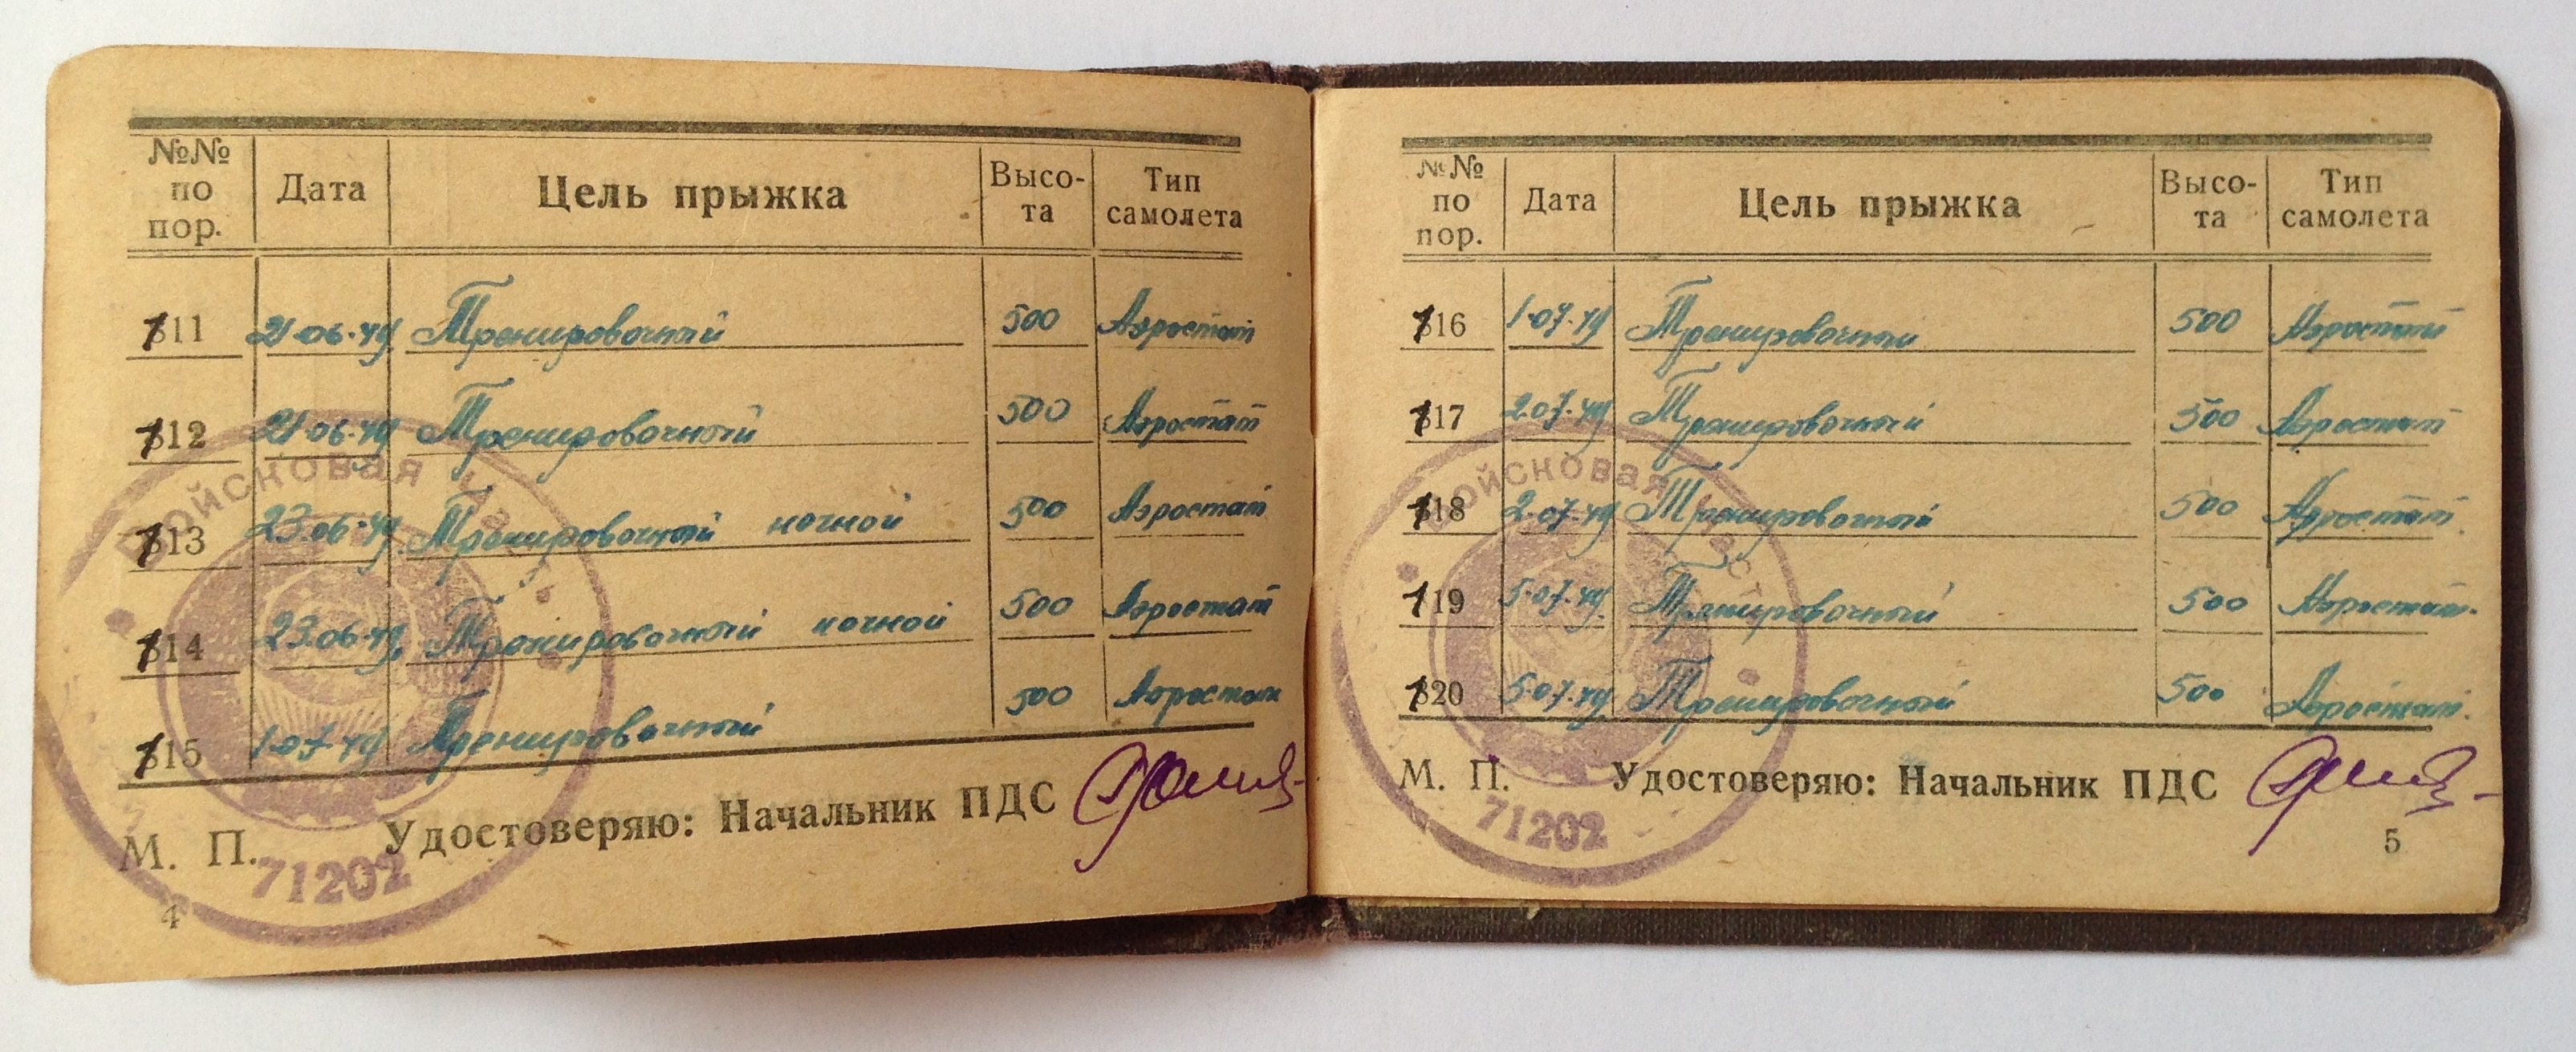 №№ по пор. Дата Цель прыжка Высо-та Тип самолета
711 21.06.49 Тренировочный 500 Аэростат
712 21.06.49 Тренировочный 500 Аэростат
713 23.06.49 Тренировочный ночной 500 Аэростат
714 23.06.49 Тренировочный ночной 500 Аэростат
715 1.07.49 Тренировочный 500 Аэростат
М. П. Удостоверяю: Начальник ПДС
Войсковая часть
71202
4
№№ по пор. Дата Цель прыжка Высо-та Тип самолета
716 1.07.49 Тренировочный 500 Аэростат
717 2.07.49 Тренировочный 500 Аэростат
718 2.07.49 Тренировочный 500 Аэростат
719 5.07.49 Тренировочный 500 Аэростат.
720 5.07.49 Тренировочный 500 Аэростат.
М. П. Удостоверяю: Начальник ПДС
Войсковая часть
71202
5